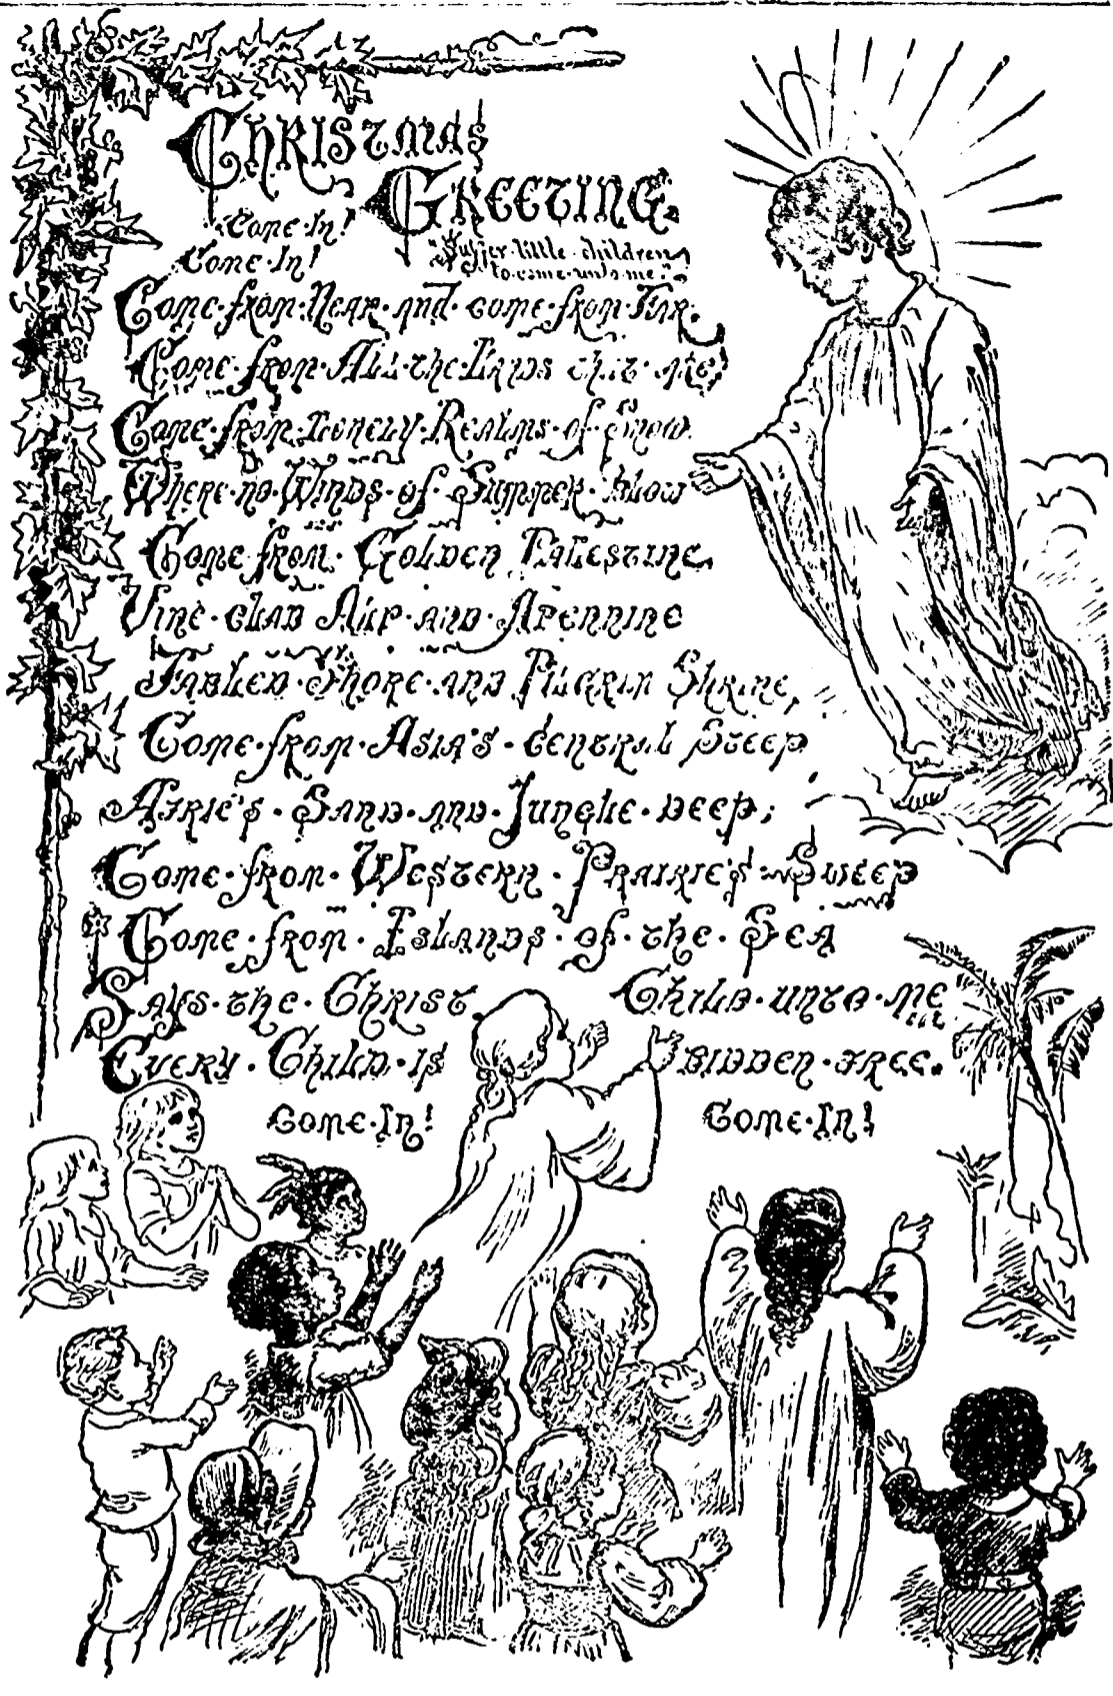 Christmas
Greeting.
Come In!
Come In!
"Suffer little children
to come unto me."
Come from Near and come from Far.
Come from All the Lands that are,
Come from Lonely Realms of Snow
Where no Winds of Summer blow
Come from Golden Palestine,
Vine clad Alp and Apennine
Fabled Shore and Pilgrim Shrine,
Come from Asia's central Steep
Afric's Sand and Jungle deep;
Come from Western Prairie's Sweep
Come from Islands of the Sea
Says the Christ Child unto me
Every Child is bidden free.
Come In! Come In!